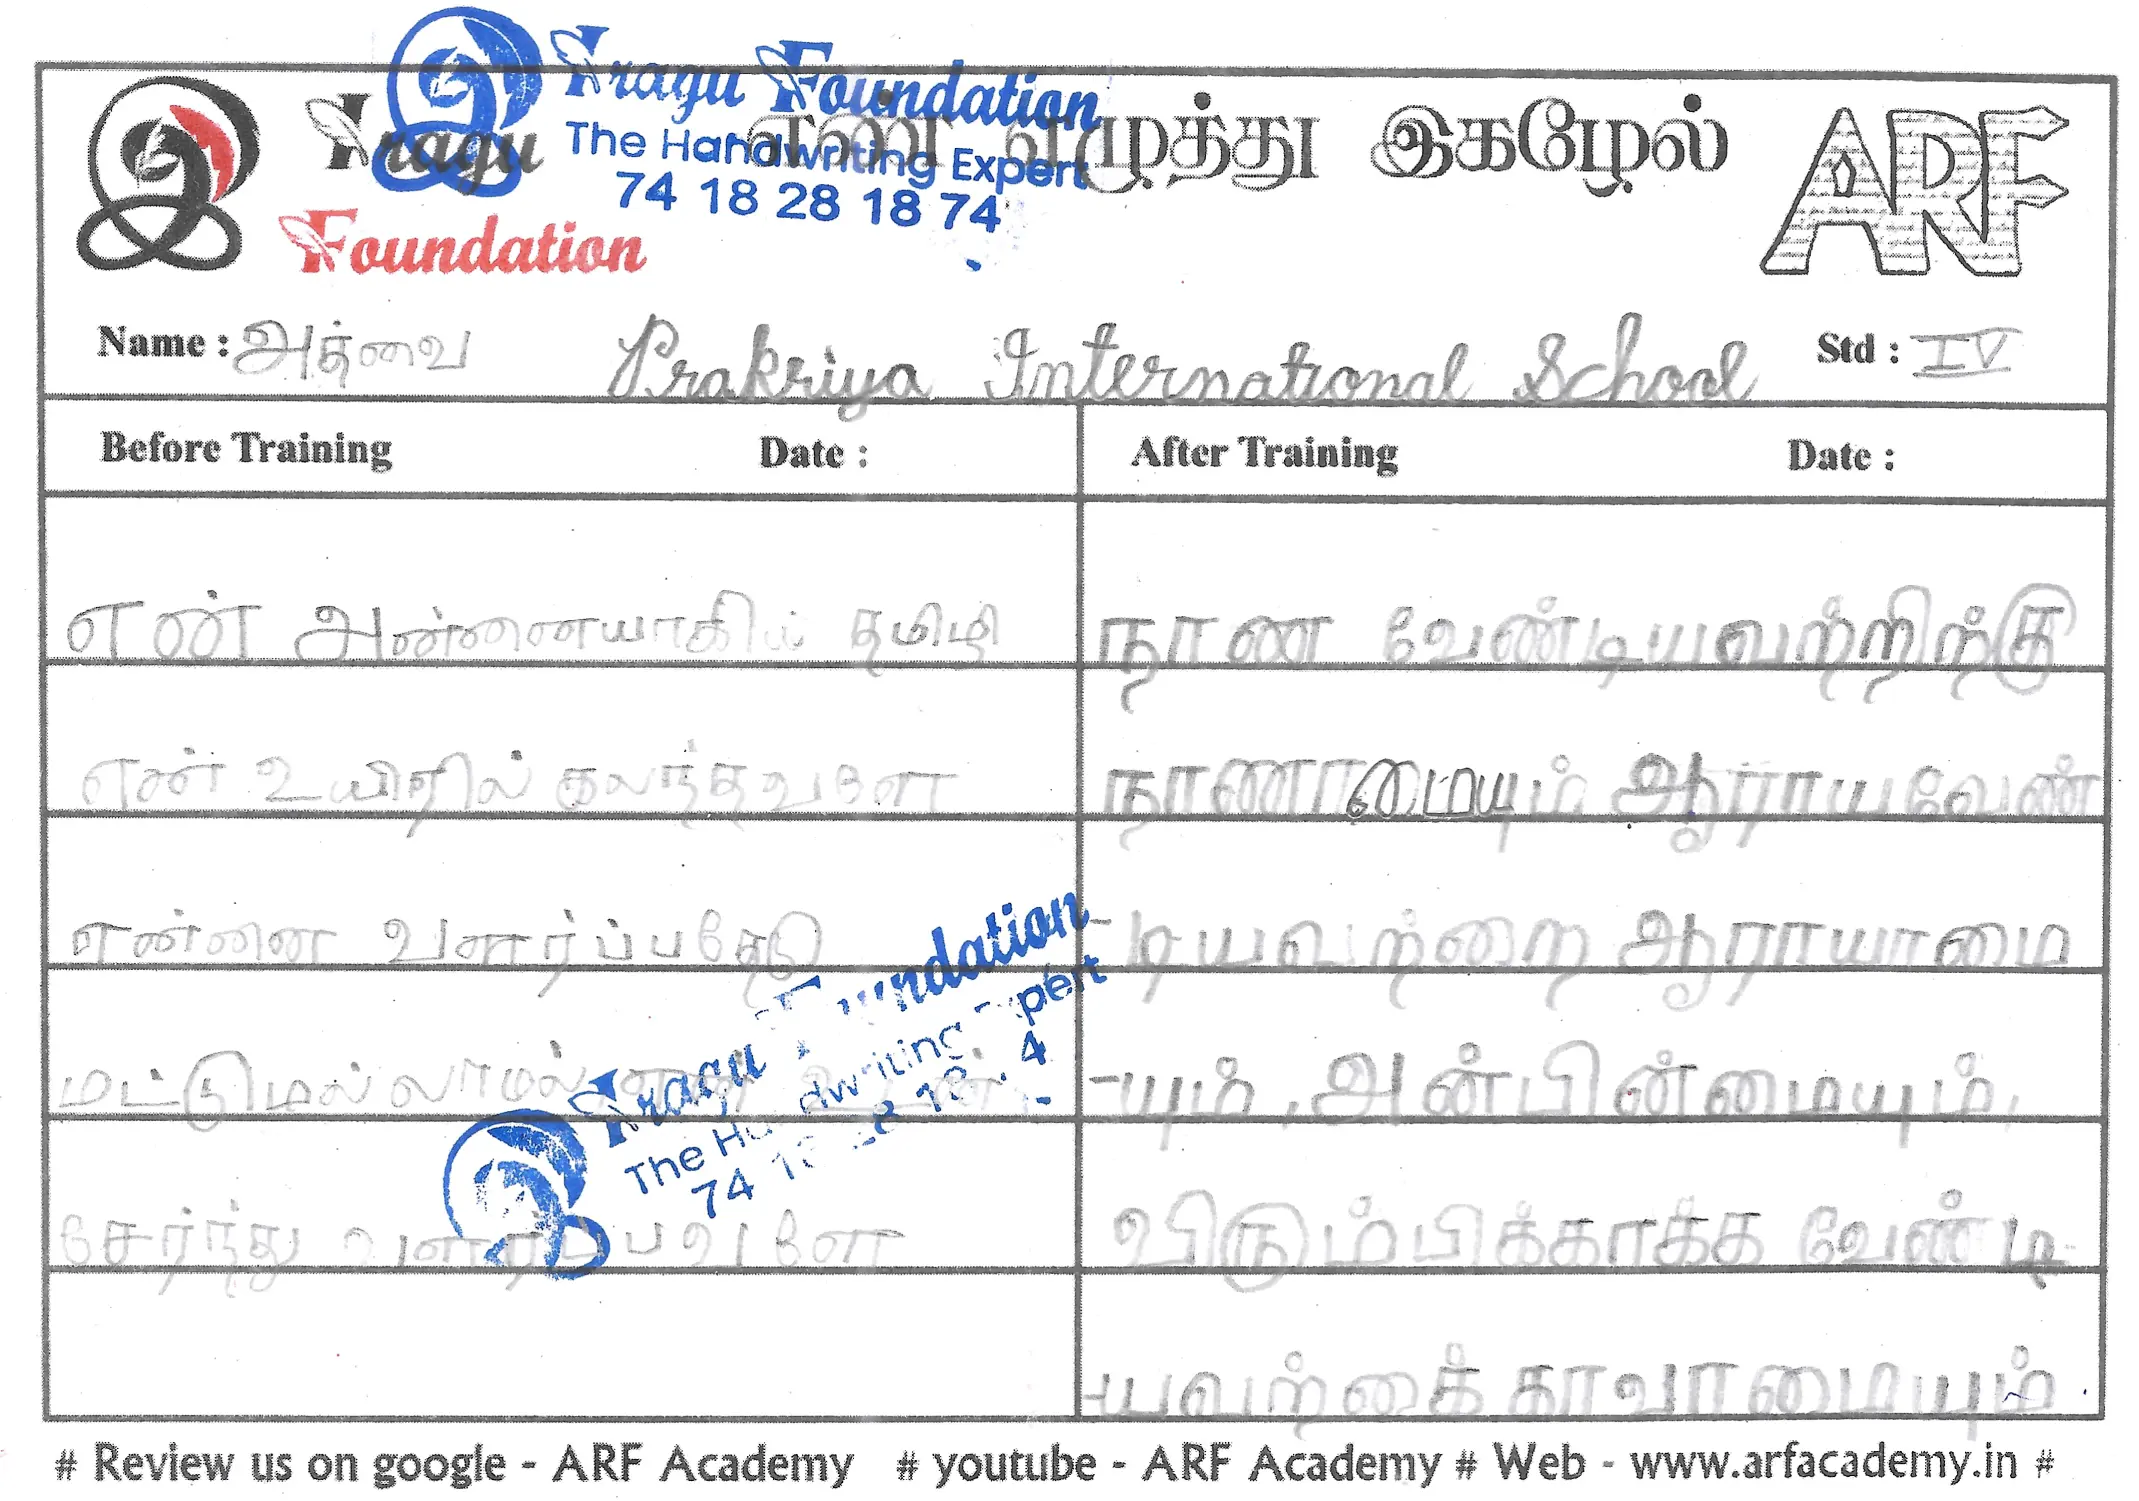 Iragu Foundation
The Handwriting Expert
74 18 28 18 74
Iragu
Foundation
எண் எழுத்து இகழேல்
ARF
Name : அத்வை
Prakriya International School
Std : IV
Before Training Date :
After Training Date :
என் அன்னையாகிய தமிழி
என் உயிரில் கலந்தவளே
என்னை வளர்ப்பதேடு
மட்டுமல்லாமல்
சேர்ந்து வளர்ப்பவளே
நாண வேண்டியவற்றிற்கு
நாணாமையும் ஆராயவேண்
-டியவற்றை ஆராயாமை
-யும், அன்பின்மையும்,
விரும்பிக்காக்க வேண்டி
-யவற்றைக் காவாமையும்
Iragu Foundation
The Handwriting Expert
# Review us on google - ARF Academy # youtube - ARF Academy # Web - www.arfacademy.in #